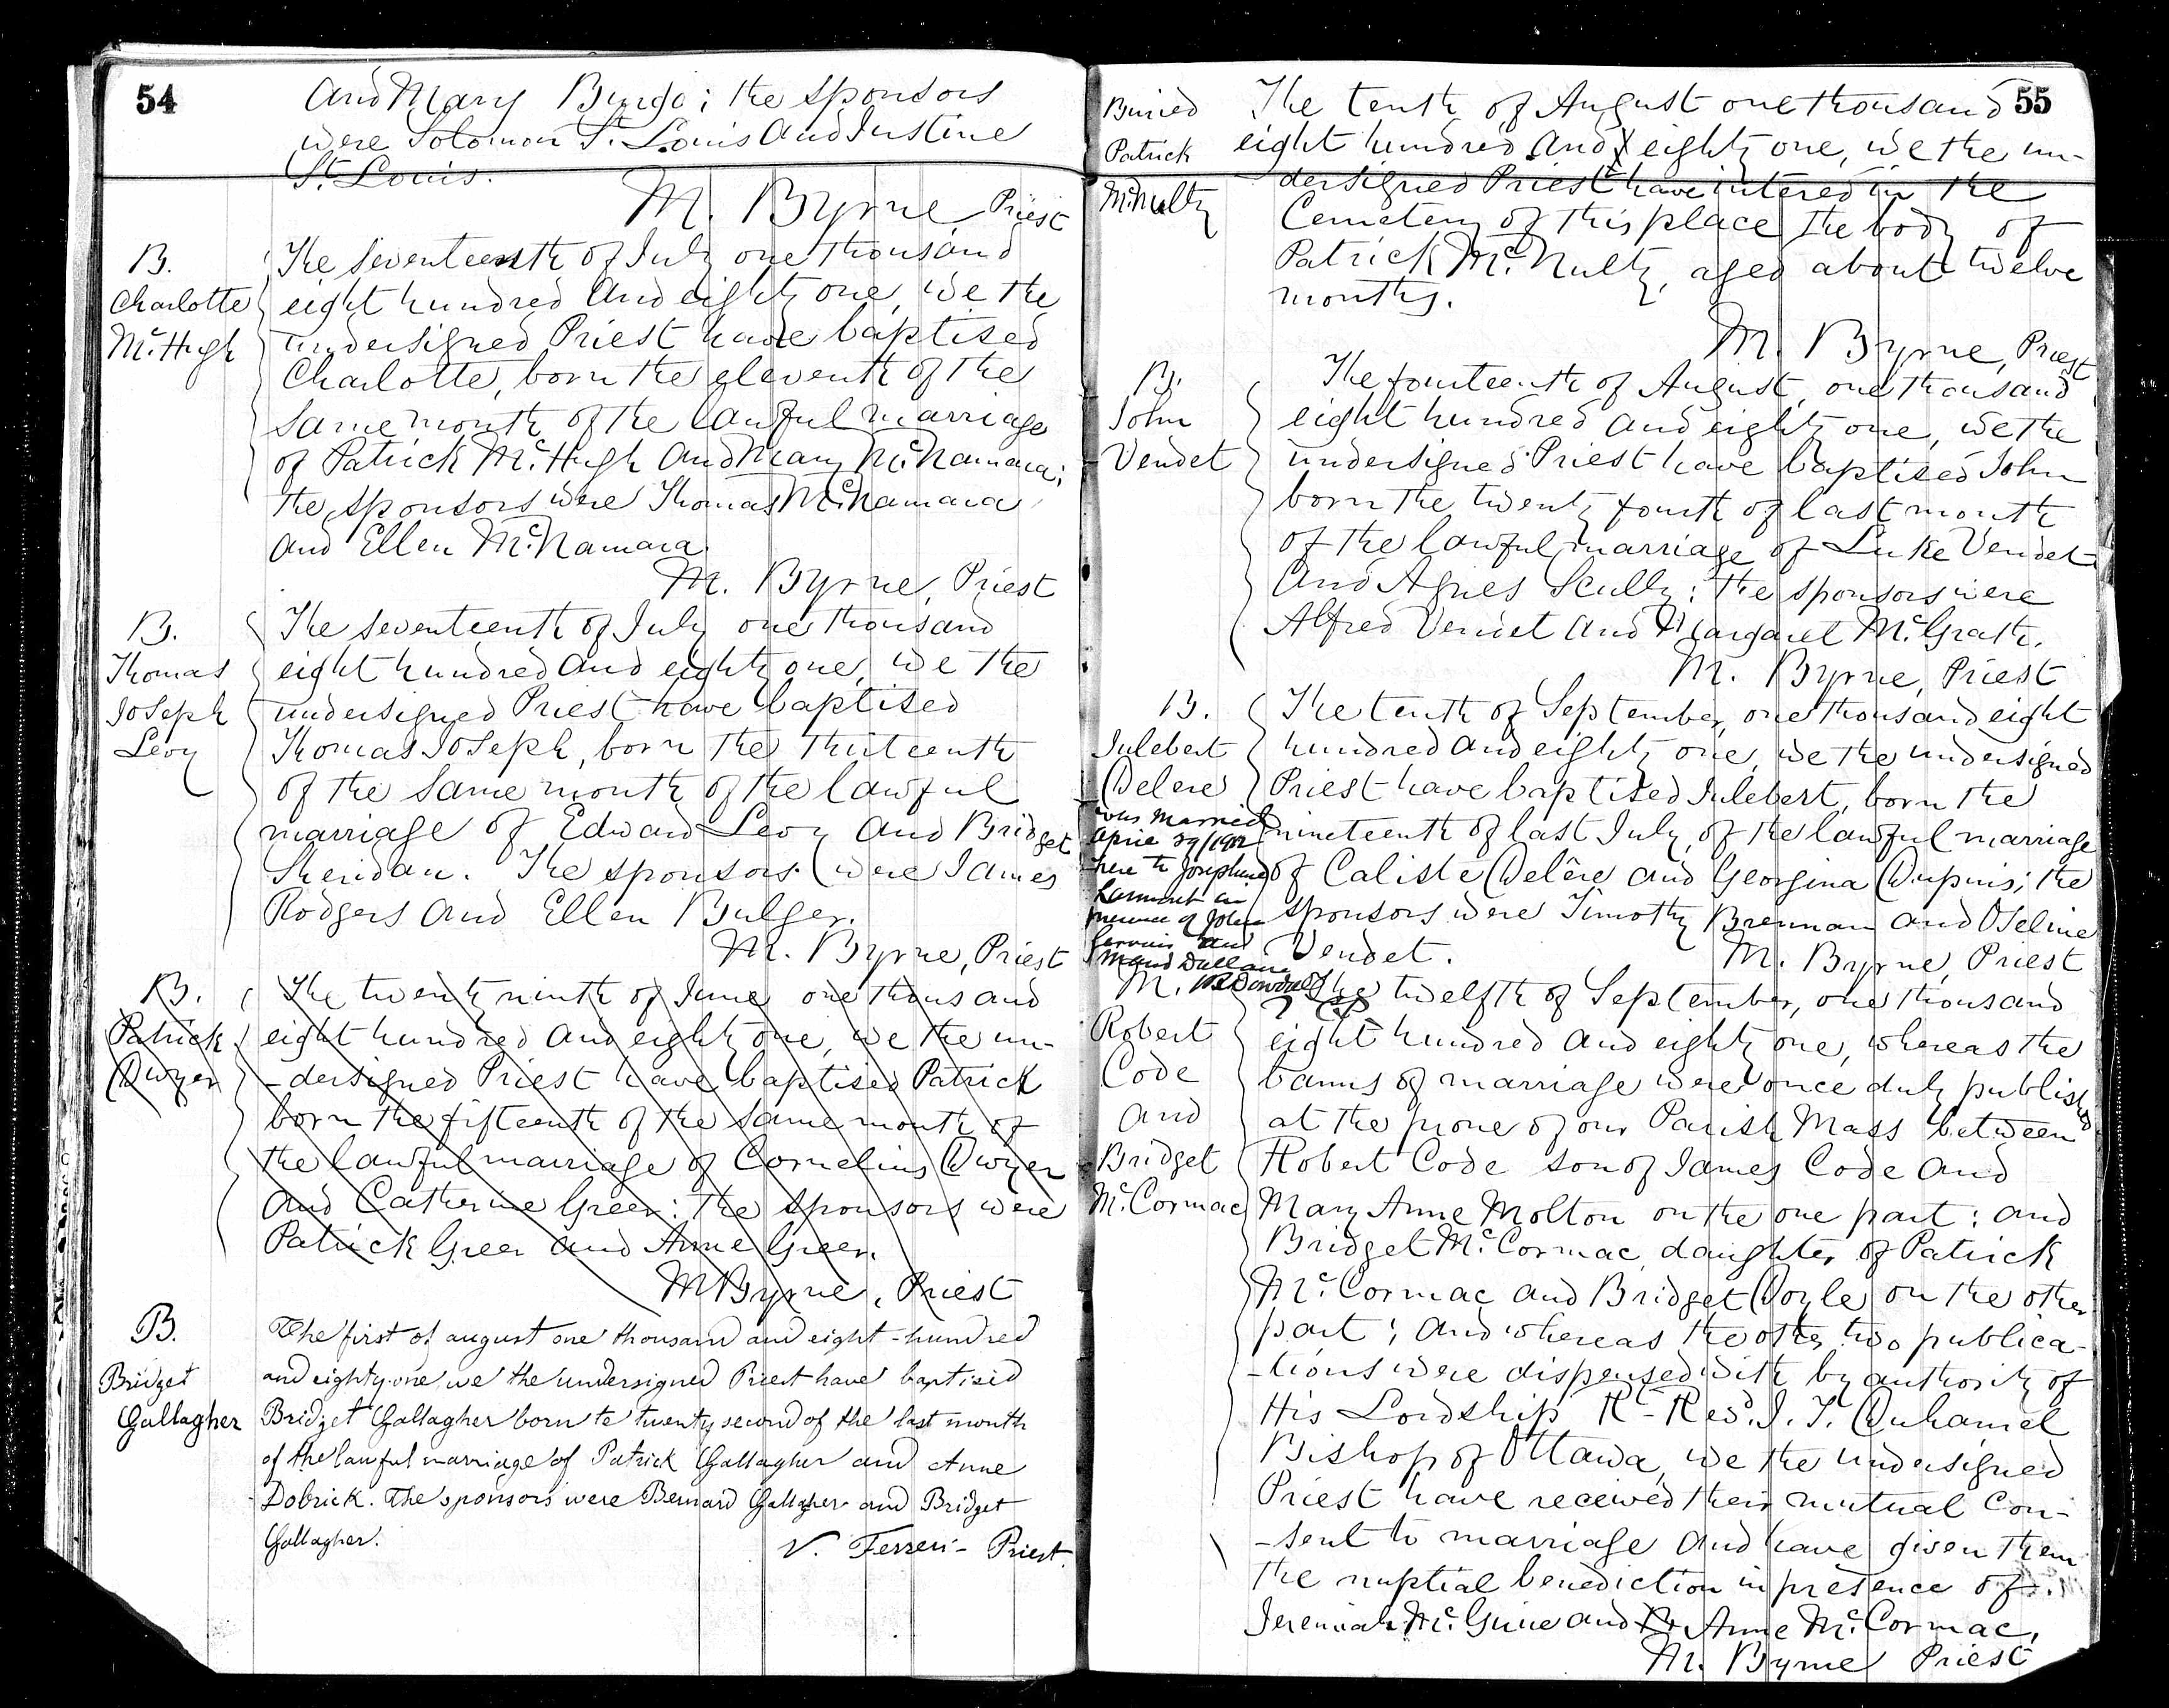 54
and Mary Burgo; the sponsors
were Solomon St. Louis and Justine
St. Louis.
M. Byrne Priest
B.
Charlotte
McHugh
The seventeenth of July one thousand
eight hundred and eighty one, we the
undersigned Priest have baptised
Charlotte, born the eleventh of the
same month of the lawful marriage
of Patrick McHugh and Mary McNamara;
the sponsors were Thomas McNamara
and Ellen McNamara
M. Byrne, Priest
B.
Thomas
Joseph
Levy
The seventeenth of July one thousand
eight hundred and eighty one, we the
undersigned Priest have baptised
Thomas Joseph, born the thirteenth
of the same month of the lawful
marriage of Edward Levy and Bridget
Sheridan. The sponsors were James
Rodgers and Ellen Bulger.
M. Byrne, Priest
B.
Patrick
Dwyer
The twenty ninth of June one thousand
eight hundred and eighty one, we the un-
-dersigned Priest have baptised Patrick
born the fifteenth of the same month of
the lawful marriage of Cornelius Dwyer
and Catherine Green: the sponsors were
Patrick Green and Anne Green.
M Byrne, Priest
B.
Bridget
Gallagher
The first of august one thousand and eight-hundred
and eighty-one we the undersigned Priest have baptised
Bridget Gallagher born te twenty second of the last month
of the lawful marriage of Patrick Gallagher and Anne
Dobrick. The sponsors were Bernard Gallagher and Bridget
Gallagher.
V. Ferreri - Priest.
55
Buried
Patrick
McNulty
The tenth of August one thousand
eight hundred and eighty one, we the un-
dersigned Priest have intered in the
Cemetery of this place the body of
Patrick McNulty, aged about twelve
months.
M. Byrne, Priest
B.
John
Vendet
The fourteenth of August, one thousand
eight hundred and eighty one, we the
undersigned Priest have baptised John
born the twenty fourth of last month
of the lawful marriage of Luke Vendet
and Agnes Scully; the sponsors were
Alfred Vendet and Margaret McGrath.
M. Byrne, Priest
B.
Julebert
Delere
was married
April 29/1902
here to Josephine
in
presence of John
and
Maud Dallaire
The tenth of September, one thousand eight
hundred and eighty one, we the undersigned
Priest have baptized Julebert, born the
nineteenth of last July, of the lawful marriage
of Caliste Delêre and Georgina Dupuis; the
sponsors were Timothy Brennan and Oseline
Vendet.
M. Byrne, Priest
M.
Robert
Code
and
Bridget
McCormac
The twelfth of September, one thousand
eight hundred and eighty one, whereas the
banns of marriage were once duly published
at the prone of our Parish Mass between
Robert Code son of James Code and
Mary Anne Molton on the one part: and
Bridget McCormac daughter of Patrick
McCormac and Bridget Doyle on the other
part; and whereas the other two publica-
-tions were dispensed with by authority of
His Lordship Rt. Revd. J. T. Duhamel
Bishop of Ottawa, we the undersigned
Priest have received their mutual con-
-sent to marriage and have given them
the nuptial benediction in presence of.
Jeremiah McGuire and Anne McCormac,
M. Byrne Priest